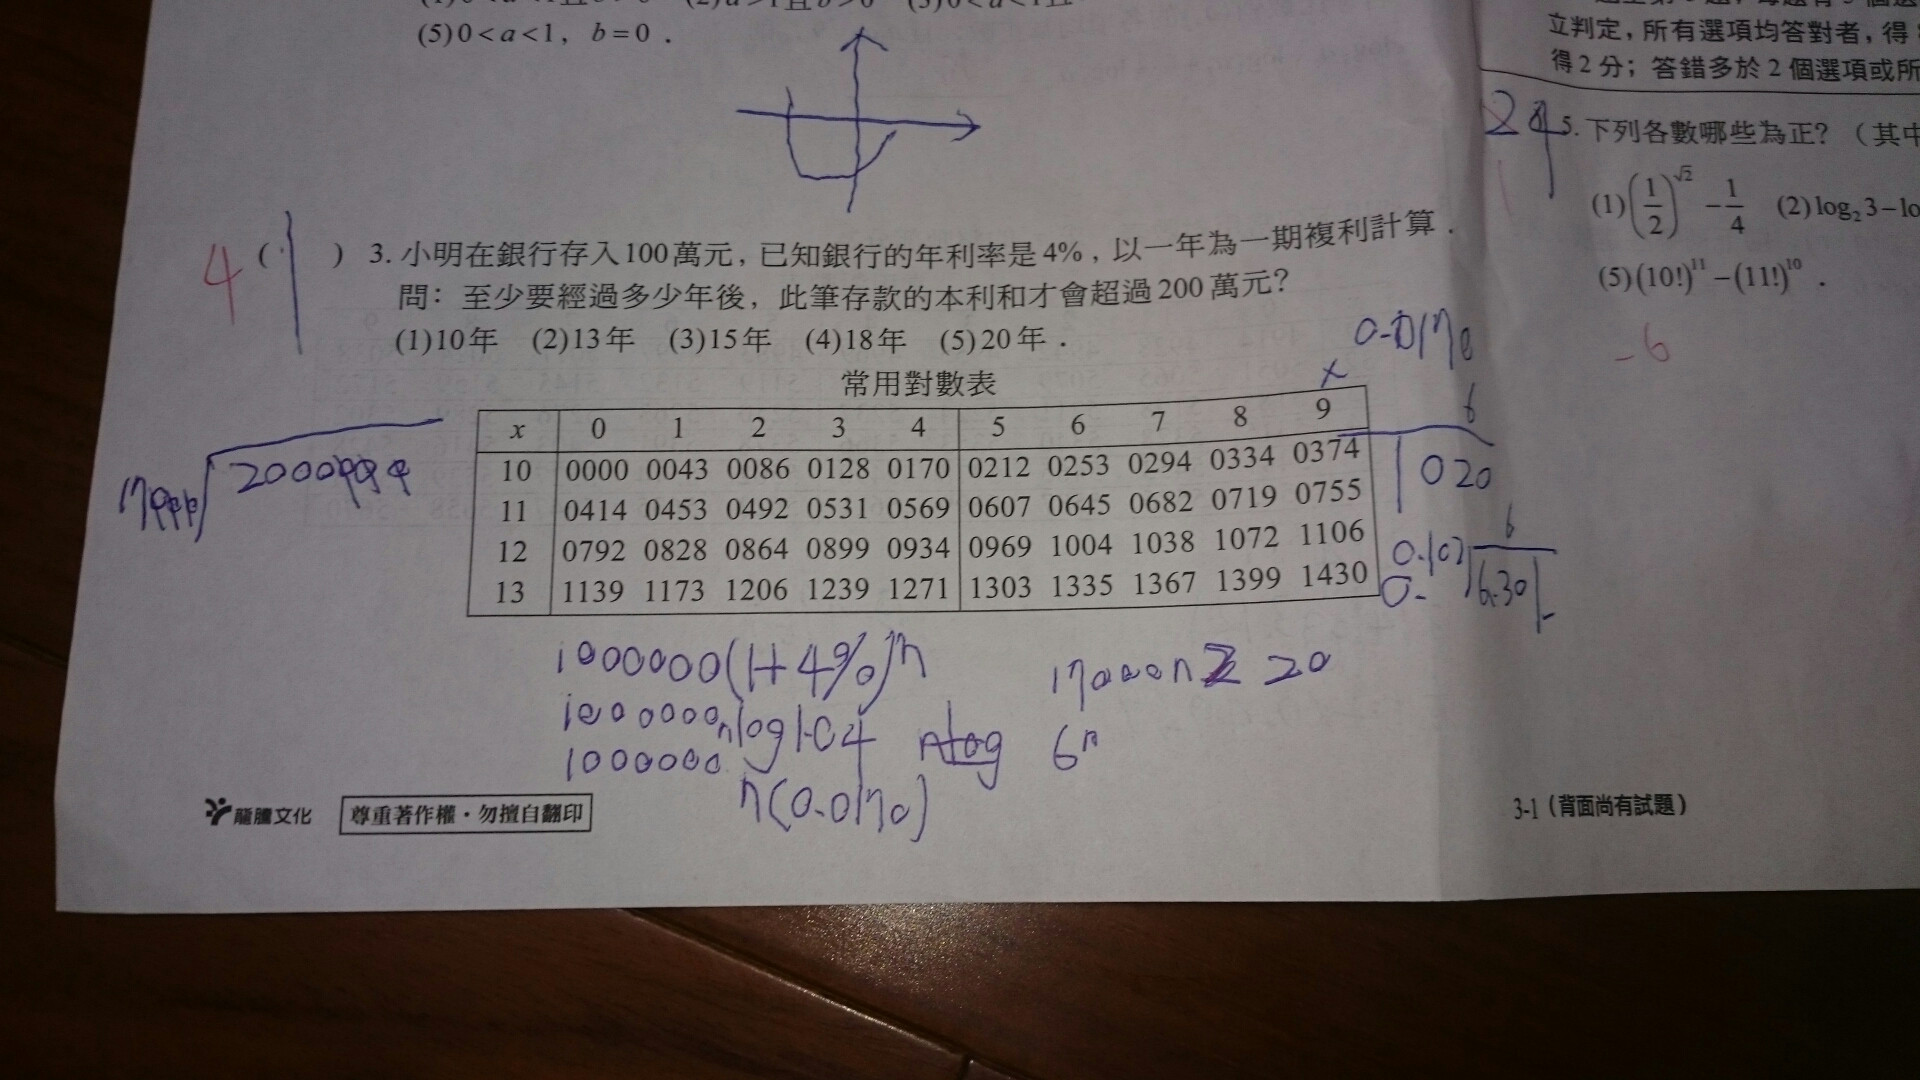 (5) 0<a<1, b=0.
立判定，所有選項均答對者，得
得2分；答錯多於2個選項或所
24
5. 下列各數哪些為正？（其中
(1)(1/2)^√2 − 1/4 (2) log₂3−lo
(5)(10!)^11 −(11!)^10 .
-6
4 ( ) 3. 小明在銀行存入100萬元，已知銀行的年利率是4%，以一年為一期複利計算．
問：至少要經過多少年後，此筆存款的本利和才會超過200萬元？
(1)10年 (2)13年 (3)15年 (4)18年 (5)20年．
常用對數表
x 0 1 2 3 4 5 6 7 8 9
10 0000 0043 0086 0128 0170 0212 0253 0294 0334 0374
11 0414 0453 0492 0531 0569 0607 0645 0682 0719 0755
12 0792 0828 0864 0899 0934 0969 1004 1038 1072 1106
13 1139 1173 1206 1239 1271 1303 1335 1367 1399 1430
0.0170
× 6
1020
6
0.102 6.301
0.
1000000(1+4%)^n
1000000 nlog1.04
1000000
n(0.0170)
17000n 20
6n
龍騰文化 尊重著作權・勿擅自翻印
3-1（背面尚有試題）